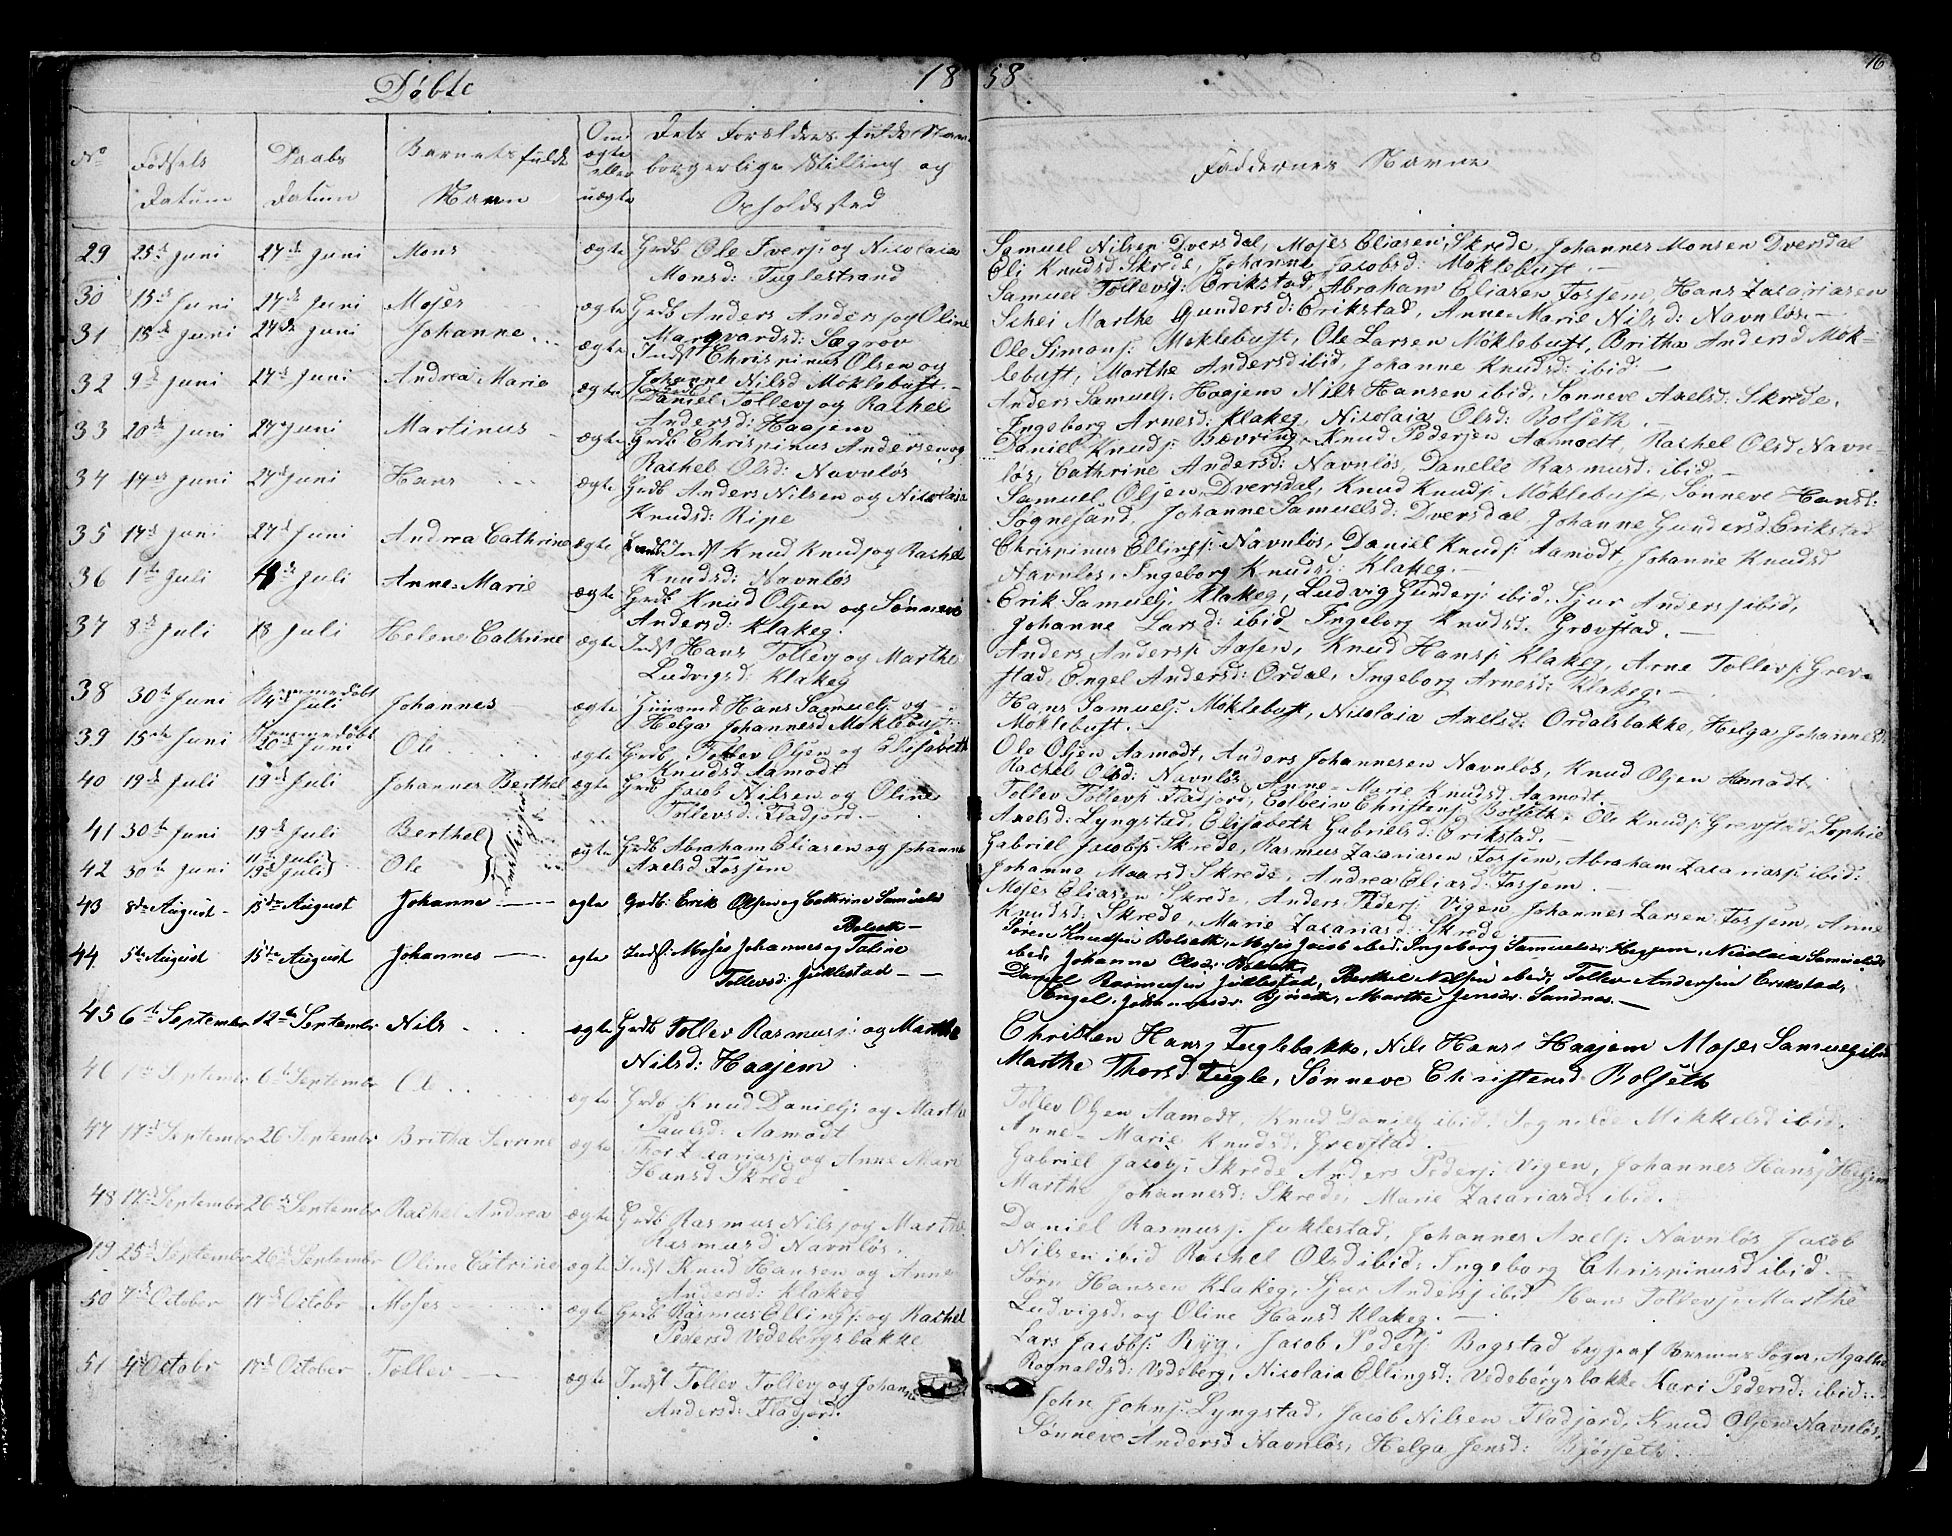 Døbte 18 58 16
No Fødsels Datum Daabs Datum Barnets fulde Navn Om ægte eller uægte Dets Forældres fulde Navn borgerlige Stilling og Opholdssted Faddernes Navne
29 25de Juni 27de Juni Mons ægte Grdb Ole Iversj og Nicolaia
Monsd: Fuglestrand
Samuel Nilsen Dversdal, Moses Eliasen Skrede, Johannes Monsen Dversdal
Eli Knudsd Skrede, Johanne Jacobsd: Møklebust. -
30 15de Juni 27de Juni Moses ægte Grdb Anders Andersj og Oline
Marqvardsd: Sægrov
Samuel Tollevsj: Erikstad, Abraham Eliasen Fossem, Hans Zacariasen
Schei Marthe Gundersd: Erikstad, Anne Marie Nilsd: Navnløs. -
31 15de Juni 27de Juni Johanne ægte Indst Chrispinus Olsen og
Johanne Nilsd Møklebust. -
Ole Simonsj: Møklebust, Ole Larsen Møklebust, Britha Andersd Møk-
lebust, Marthe Andersd ibid, Johanne Knudsd: ibid: -
32 9de Juni 27de Juni Andrea Marie ægte Daniel Tollevsj og Rachel
Andersd: Haajem
Anders Samuelsj: Haajem Nils Hansen ibid, Sønneve Axelsd: Skrede,
Ingeborg Arnesd: Klakeg, Nicolaia Olsd: Bolseth. -
33 20de Juni 27 Juni Martinus ægte Grdb Chrispinus Andersen og
Rachel Olsd: Navnløs
Daniel Knudsj: Bævring, Knud Pedersen Aamodt, Rachel Olsd Navn-
løs, Cathrine Andersd: Navnløs, Danelle Rasmusd: ibid. -
34 14de Juni 27de Juni Hans ægte Grdb Anders Nilsen og Nicolaia
Knudsd: Ripe
Samuel Olsen Dversdal, Knud Knudsj: Møklebust, Sønneve Hansd:
Sognesand, Johanne Samuelsd: Dversdal Johanne Gundersd Erikstad
35 17de Juni 27de Juni Andrea Cathrine ægte Indst Knud Knudsj og Rachel
Knudsd: Navnløs
Chrispinus Ellingsj: Navnløs, Daniel Knudsj: Aamodt, Johanne Knudsd
Navnløs, Ingeborg Knudsd: Klakeg. -
36 1de Juli Juli Anne Marie ægte Grdb Knud Olsen og Sønneve
Andersd: Klakeg.
Erik Samuelsj. Klakeg, Ludvig Gundersj: ibid, Sjur Andersj ibid,
Johanne Larsd: ibid Ingeborg Knudsd: Grevstad. -
37 8de Juli 18 Juli Helene Cathrine ægte Indst Hans Tollevsj og Marthe
Ludvigsd: Klakeg
Anders Andersj Aasen, Knud Hansj: Klakeg, Arne Tollevsj: Grev-
stad, Engel Andersd: Ordal, Ingeborg Arnesd: Klakeg. -
38 30te Juni Hjemmedøbt 4de Juli Johannes ægte Huusmd Hans Samuelsj og
Helga Johannesd Møklebust.
Hans Samuelsj: Møklebust, Nicolaia Axelsd: Ordalsbakke, Helga Johannesd
Møklebust. -
39 15de Juni Hjemmedøbt 20de Juni Ole ægte Grdb. Tollev Olsen og Elisabeth
Knudsd Aamodt
Ole Olsen Aamodt, Anders Johannesen Navnløs, Knud Olsen Aamodt,
Rachel Olsd: Navnløs, Anne-Marie Knudsd Aamodt.
40 19de Juli 19de Juli Johannes Berthel ægte Grdb Jacob Nilsen og Oline
Tollevsd: Fladjord. -
Tollev Tollevsj Fladjord, Colbein Christensj Bolseth, Ole Knudsj: Grevstad, Sophie
Axelsd: Lyngstad, Elisabeth Gabrielsd: Erikstad. -
41 30te Juni 19de Juli Berthel Tvillinger
ægte Grdb Abraham Eliasen og Johanne
Axelsd Fossem
Gabriel Jacobsj: Skrede, Rasmus Zacariasen Fossem, Abraham Zacariasj ibid:
Johanne Maarsd Skrede, Andrea Eliasd: Fossem. -
42 30te Juni 11te Juli 19de Juli Ole
Moses Eliasen Skrede, Anders Pedersj: Vigen Johannes Larsen Fossem, Anne
Knudsd: Skrede, Marie Zacariasd: Skrede
43 8de August 15de August Johanne ægte Grdb: Erik Olsen og Cathrine Samuelsd
Bolseth -
Søren Knudsen Bolseth, Moses Jacob ibid, Ingeborg Samuelsd: Heggem, Nicolaia Samuelsd:
ibid, Johanne Olsd: Bolseth.
44 5te August 15de August Johannes ægte Indst: Moses Johannes og Taline
Tollevsd: Juklestad -
Daniel Rasmusen Juklestad, Berthel Nilsen ibid, Tollev Andersen Erikstad,
Engel Johannesdr Bjøseth, Marthe Jensdr. Sandnes. -
45 6te September 12te September Nils ægte Grdb Tollev Rasmusj: og Marthe
Nilsd: Haajem
Christen Hansj Fuglebakke, Nils Hansj Haajem Moses Samuelsj ibid
Marthe Thorsd Fugle, Sønneve Christensd Bolseth
46 1te September 6te September Ole ægte Grdb Knud Danielsj: og Marthe
Paulsd: Aamodt
Tollev Olsen Aamodt, Knud Danielsj ibid, Sognilde Mikkelsd ibid.
Anne-Marie Knudsd: Grevstad. -
47 17de September 26 September Britha Severine ægte Thor Zacariasj: og Anne Mari
Hansd Skrede
Gabriel Jacobsj: Skrede Anders Pedersj: Vigen, Johannes Hansj Hegjem
Marthe Johannesd: Skrede, Marie Zacariasd: ibid.
48 17de September 26de September Rachel Andrea ægte Grdb Rasmus Nilsj og Marthe
Rasmusd Navnløs.
Daniel Rasmusj: Juklestad, Johannes Axelsj: Navnløs Jacob
Nilsen ibid Rachel Olsd ibid: Ingeborg Chrispinusd ibid.
49 25de September 26de September Oline Catrine ægte Indst Knud Hansen og Anne
Andersd: Klakeg
Sørn Hansen Klakeg, Sjur Andersj ibid Hans Tollevsj: Marthe
Ludvigsd. og Oline Hansd Klakeg. -
50 7de October 17de Octobr Moses ægte Grdb Rasmus Ellingsj: og Rachel
Pedersd Vedebergsbakke
Lars Jacobsj: Ryg, Jacob Pedersj: Bogstad begge af Sogn, Agathe
Rognaldsd: Vedeberg, Nicolaia Ellingsd: Vedebergsbakke Kari Pedersd: ibid:.
51 4de Octobr 17de October Tollev ægte Indst Tollev Tollevsj og Johanne
Andersd: Fladjord.
John Johnsj: Lyngstad, Jacob Nilsen Fladjord, Knud Olsen Navnløs,
Sønneve Andersd Navnløs, Helga Jensd: Bjøseth.